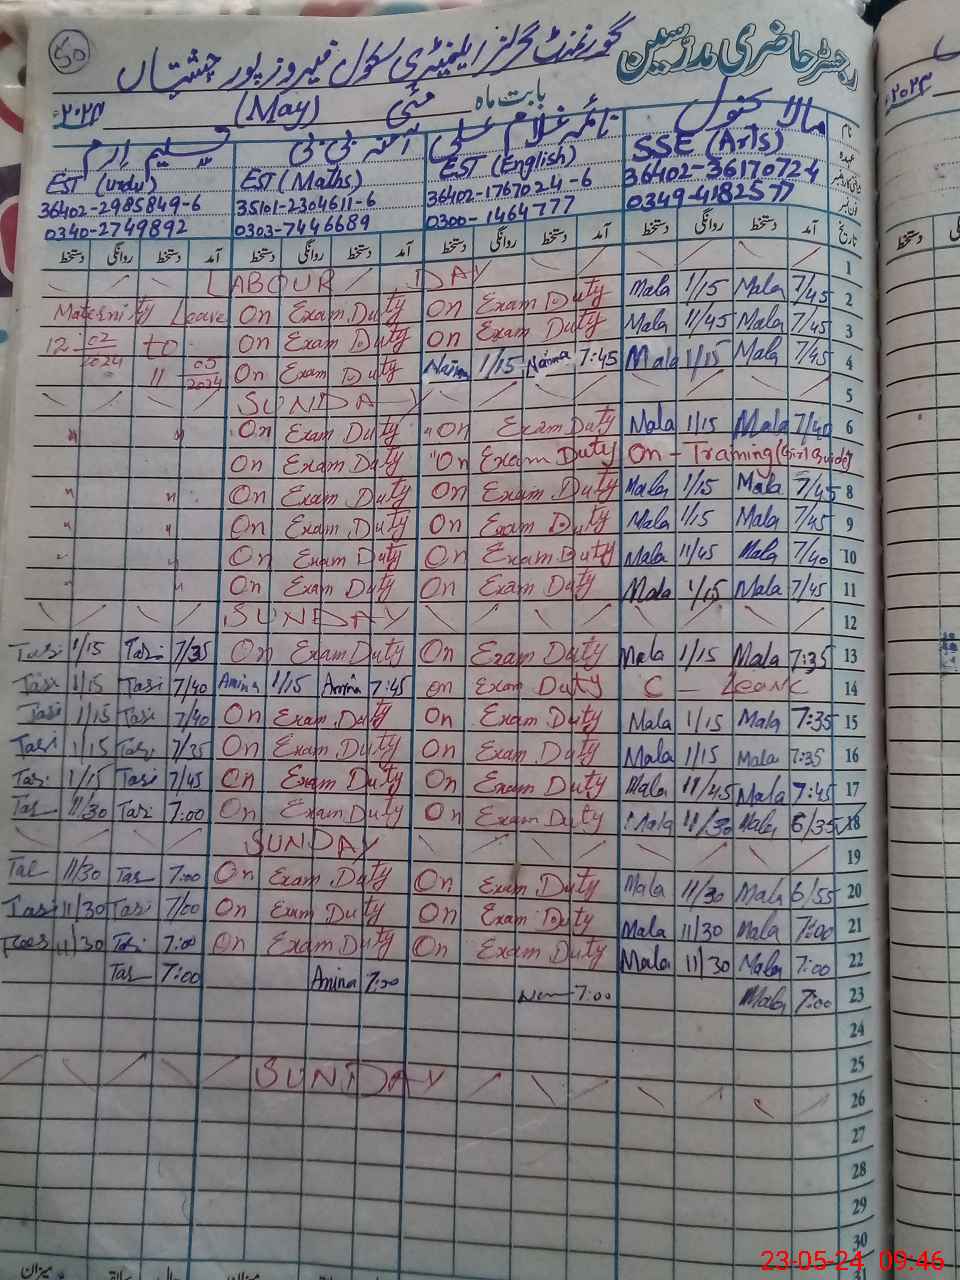 50
رجسٹر حاضری مدرسین گورنمنٹ گرلز ایلیمینٹری سکول فیروز پور چشتیاں
بابت ماہ مئی (May) ۲۰۲۴ء
نام مالا کنول نائمہ غلام علی آمنہ بی بی تسلیم ارم
عہدہ SSE (Arts) EST (English) EST (Maths) EST (Urdu)
36402-3617072-4 36402-1767024-6 35101-2304611-6 36402-2985849-6
0349-4182577 0300-1464777 0303-7446689 0340-2749892
تاریخ آمد دستخط روانگی دستخط آمد دستخط روانگی دستخط آمد دستخط روانگی دستخط آمد دستخط روانگی دستخط
LABOUR DAY 1
Maternity Leave On Exam Duty On Exam Duty Mala 1/15 Mala 7/45 2
12 02/2024 to On Exam Duty On Exam Duty Mala 11/45 Mala 7/45 3
11 05/2024 On Exam Duty Naima 1/15 Naima 7:45 Mala 1/15 Mala 7/45 4
SUNDAY 5
" " On Exam Duty " On Exam Duty Mala 1/15 Mala 7/40 6
On Exam Duty " On Exam Duty On - Training (Girl Guide)
" " On Exam Duty On Exam Duty Mala 1/15 Mala 7/45 8
" " On Exam Duty On Exam Duty Mala 1/15 Mala 7/45 9
" " On Exam Duty On Exam Duty Mala 11/45 Mala 7/40 10
" " On Exam Duty On Exam Duty Mala 1/15 Mala 7/45 11
SUNDAY 12
Tasi 1/15 Tasi 7/35 On Exam Duty On Exam Duty Mala 1/15 Mala 7:35 13
Tasi 1/15 Tasi 7/40 Amina 1/15 Amina 7:45 On Exam Duty C - Leave 14
Tasi 1/15 Tasi 7/40 On Exam Duty On Exam Duty Mala 1/15 Mala 7:35 15
Tasi 1/15 Tasi 7/35 On Exam Duty On Exam Duty Mala 1/15 Mala 7:35 16
Tasi 1/15 Tasi 7/45 On Exam Duty On Exam Duty Mala 11/45 Mala 7:45 17
Tas 11/30 Tas 7:00 On Exam Duty On Exam Duty Mala 11/30 Mala 6/35 18
SUNDAY 19
Tas 11/30 Tas 7:00 On Exam Duty On Exam Duty Mala 11/30 Mala 6/55 20
Tasi 11/30 Tasi 7/00 On Exam Duty On Exam Duty Mala 11/30 Mala 7:00 21
11/30 Tasi 7:00 On Exam Duty On Exam Duty Mala 11/30 Mala 7:00 22
Tas 7:00 Amina 7:00 7:00 Mala 7:00 23
24
25
SUNDAY 26
27
28
29
30
31
میزان
۲۰۲۴ء
23-05-24 09:46